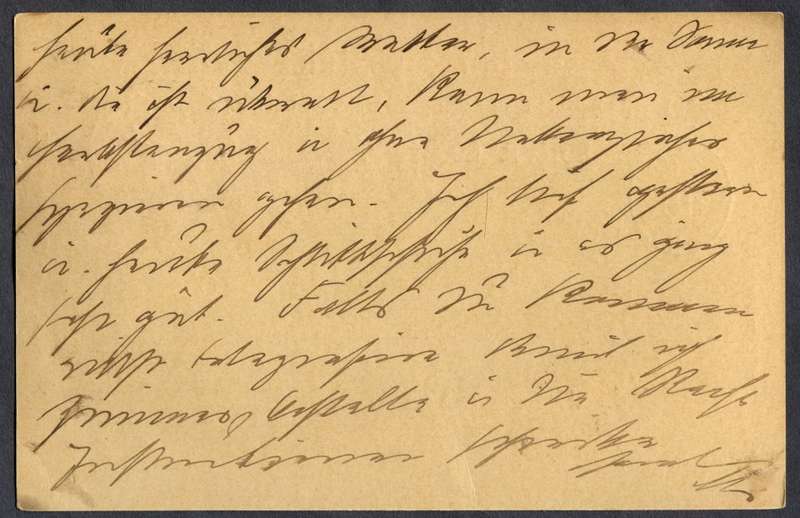 heute herrliches Wetter, in der Sonne
u. da ist überall, kann man im
Herbstanzug u ohne Ueberzieher
spazieren gehen. Ich lief gestern
u. heute Schlittschuhe u es ging
sehr gut. Falls Du kommen
willst telegrafire damit ich
Zimmer bestelle u Dir
Instructionen schicke